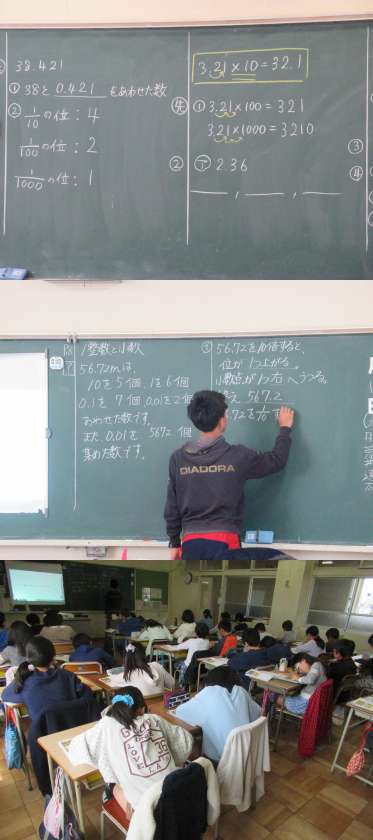 38.421
① 38と 0.421 をあわせた数
② 1/10 の位：4
1/100 の位：2
1/1000 の位：1
3.21×10=32.1
① 3.21×100=321
3.21×1000=3210
② ㋐ 2.36
③
④
P.8
1 整数と小数
56.72mは、
10を5個 1を6個
0.1を7個 0.01を2個
あわせた数です。
また 0.01を 5672 個
集めた数です。
56.72を10倍すると、
位が 1つ上がる。
小数点が1つ右へうつる。
567.2
.72を 1/10
DIADORA
LOVE